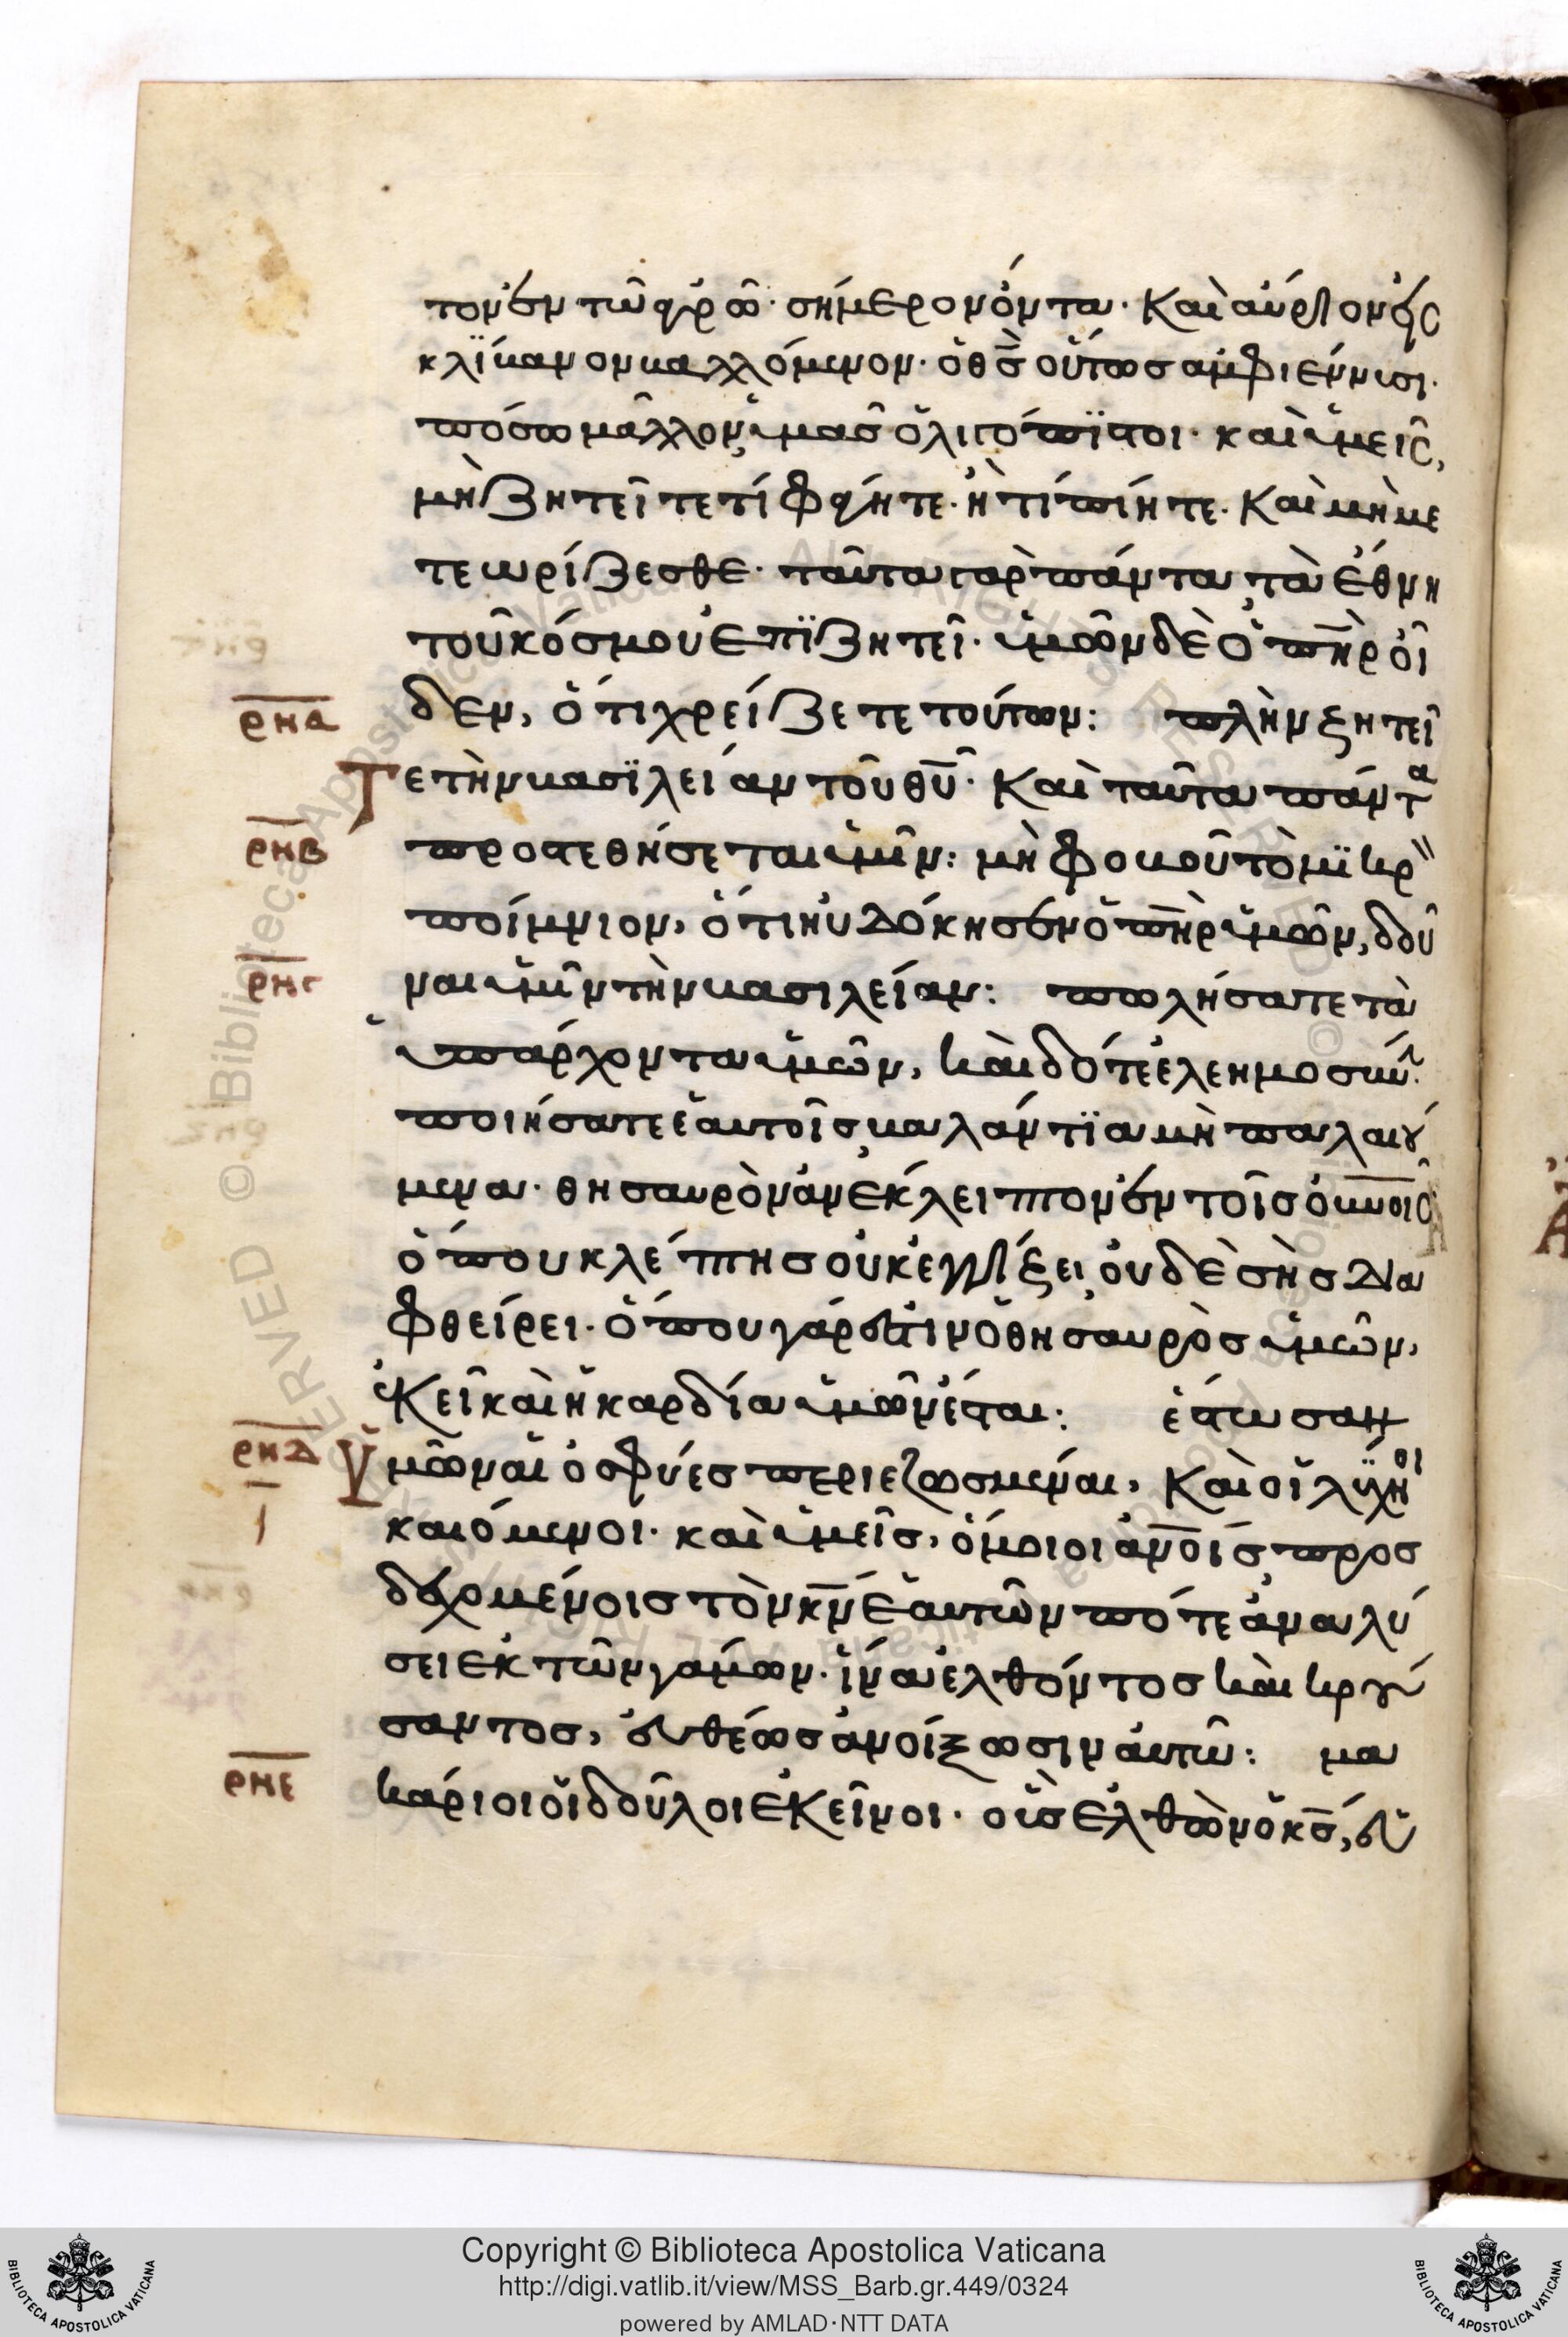 τον ἐν τῶ ἀγρῶ· σήμερον ὄντα· Καὶ αὔριον εἰς
κλίβανον βαλλόμενον· ὁ θς οὕτως ἀμφιέννυσι·
πόσω μᾶλλον ὑμᾶς ὀλιγόπιστοι· καὶ ὑμεῖς,
μὴ ζητεῖτε τί φάγητε· ἢ τί πίητε· Καὶ μὴ με
τεωρίζεσθε· ταῦτα γὰρ πάντα τὰ ἔθνη
τοῦ κόσμου ἐπιζητεῖ· ὑμῶν δὲ ὁ πηρ οἶ
ρνα δεν, ὅτι χρείζετε τούτων: πλὴν ζητεῖ
Τε τὴν βασιλείαν τοῦ θυ· Καὶ ταῦτα πάντα
ρνβ προστεθήσεται ὑμῖν: μὴ φοβοῦ τὸ μικρ
ποίμνιον, ὅτι ηὐδόκησεν ὁ πηρ ὑμῶν, δοῦ
ρνγ ναι ὑμῖν τὴν βασιλείαν: πωλήσατε τὰ
ὑπάρχοντα ὑμῶν, καὶ δότε ἐλεημοσύν·
ποιήσατε ἑαυτοῖς βαλάντια μὴ παλαιού
μενα· θησαυρὸν ἀνέκλειπτον ἐν τοῖς οὐνοις
ὅπου κλέπτης οὐκ ἐγγίζει, οὐδὲ σὴς δια
φθείρει· ὅπου γάρ ἐστιν ὁ θησαυρὸς ὑμῶν,
ἐκεῖ καὶ ἡ καρδία ὑμῶν ἔσται: ἔστωσαν
ρνδ Ὑμῶν αἱ ὀσφύες περιεζωσμέναι, Καὶ οἱ λύχνοι
ι καιόμενοι· καὶ ὑμεῖς, ὅμοιοι ἀνοις προσ
δεχομένοις τὸν κν ἑαυτῶν πότε ἀναλύ
σει ἐκ τῶν γάμων· ἵνα ἐλθόντος καὶ κρού
σαντος, εὐθέως ἀνοίξωσιν αὐτῶ: μα
ρνε κάριοι οἱ δοῦλοι ἐκεῖνοι· οὓς ἐλθὼν ὁ κς, εὑ
Copyright © Biblioteca Apostolica Vaticana
http://digi.vatlib.it/view/MSS_Barb.gr.449/0324
powered by AMLAD·NTT DATA